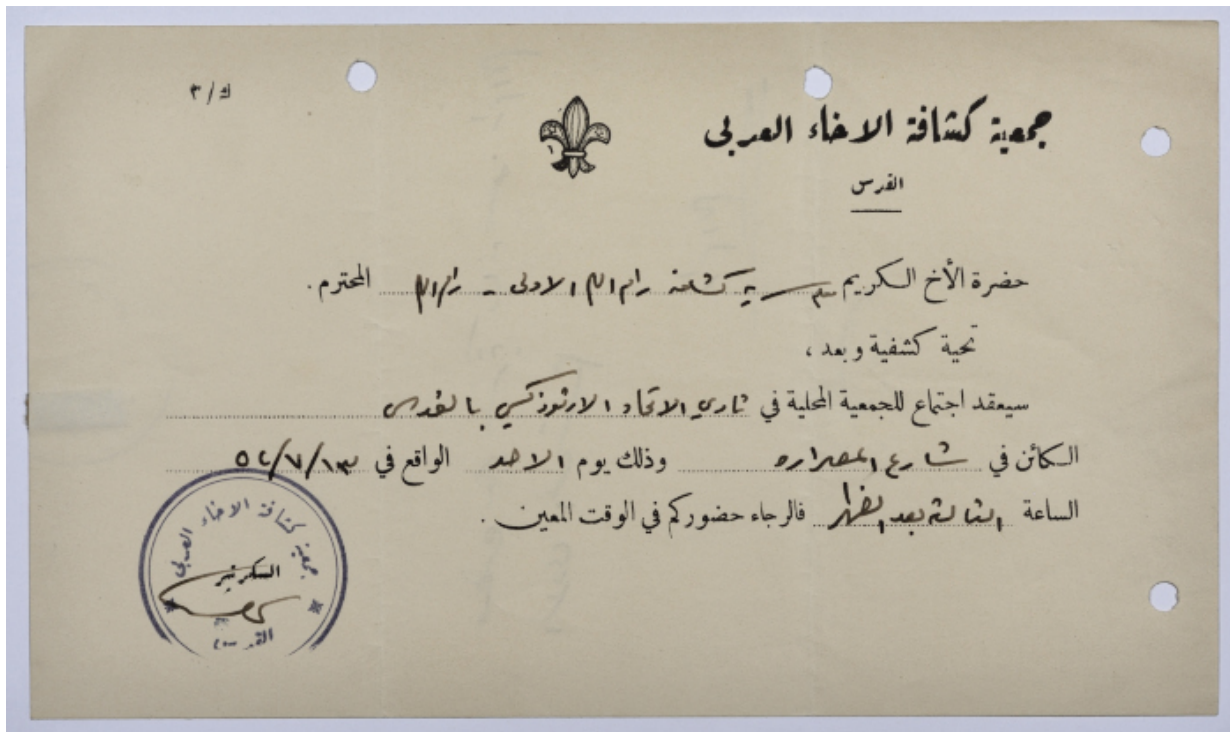 ك/٣
جمعية كشافة الاخاء العربي
القدس
حضرة الأخ الكريم سرية كشافة رام الله الاولى - رام الله المحترم .
تحية كشفية وبعد ،
سيعقد اجتماع للجمعية المحلية في نادي الاتحاد الارثوذكسي بالقدس
الكائن في شارع المصراره وذلك يوم الاحد الواقع في ١٣/٧/٥٢
الساعة الثالثة بعد الظهر فالرجاء حضوركم في الوقت المعين .
جمعية كشافة الاخاء العربي
السكرتير
القدس